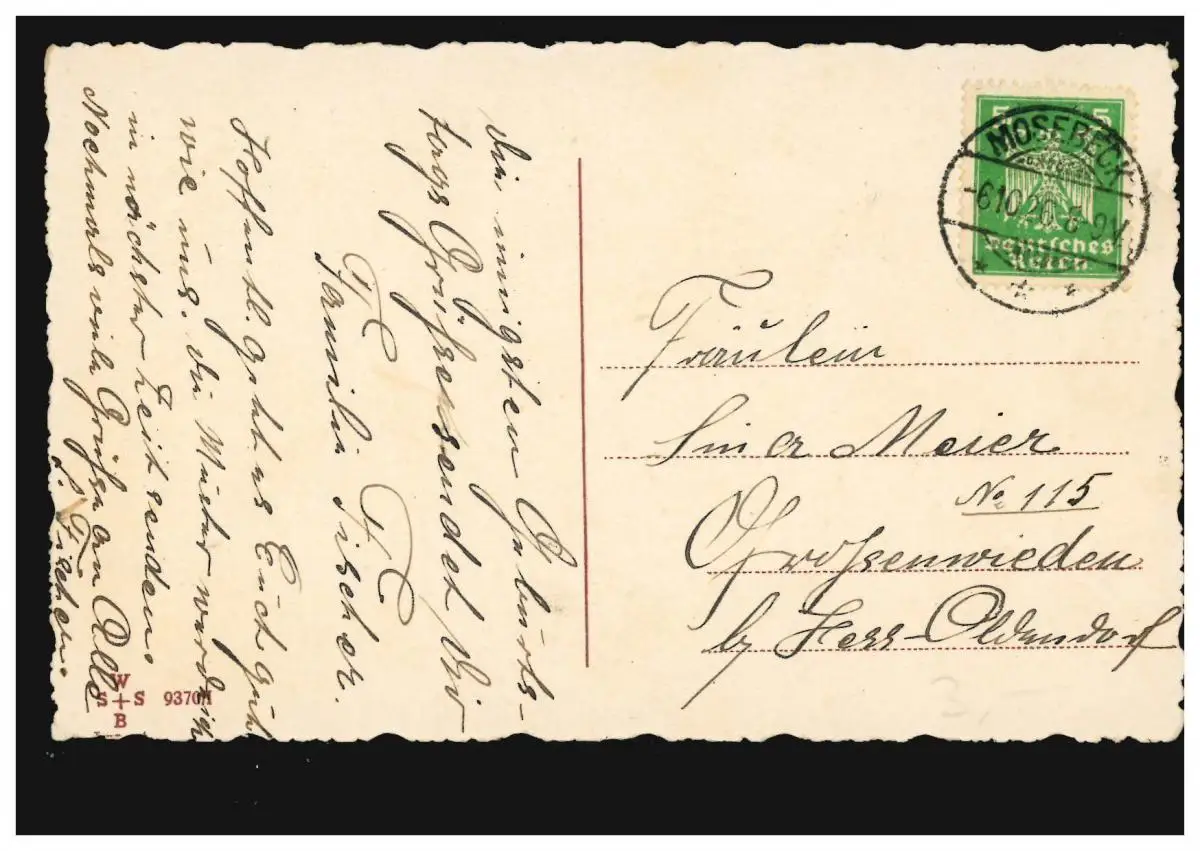 Die innigsten Geburts-
tags Grüße sendet Dir
Familie Fischer.
Hoffentl. geht es Euch gut
wie uns. Die Mutter werd ich
in nächster Zeit senden.
Nochmals viele Grüße an Alle
Fischer.
5 5
MOSEBECK
-6.10. 5-9V
Deutsches
Reich
Fräulein
Meier
No 115
Grossenwieden
by Hess-Oldendorf
W
S+S 9370/I
B
3,-